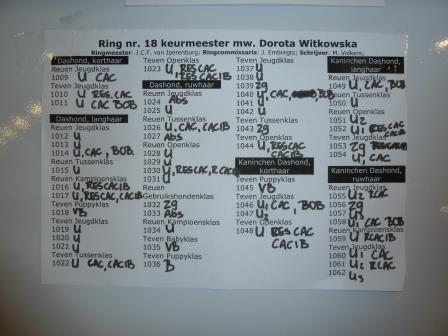 Ring nr. 18 keurmeester mw. Dorota Witkowska
Ringmeester: J.C.F. van Iperenburg; Ringcommissaris: J. Embregts; Schrijver: H. Volkers;
Dashond, korthaar
Reuen Jeugdklas
1009 U CAC
Teven Jeugdklas
1010 U RES,CAC
1011 U CAC BOB
Dashond, langhaar
Reuen Jeugdklas
1012 U
1013 U
1014 U, CAC, BOB
Reuen Tussenklas
1015 U
Reuen Kampioensklas
1016 U, RESCACIB
1017 U, RESCAC, CACIB
Teven Puppyklas
1018 VB
Teven Jeugdklas
1019 U
1020 U
1021 U
Teven Tussenklas
1022 U CAC, CACIB
Teven Openklas
1023 U RESCAC
RESCACIB
Dashond, ruwhaar
Reuen Jeugdklas
1024 Abs
1025 U
Reuen Tussenklas
1026 U, CAC, CACIB
1027 Abs
Reuen Openklas
1028 U
1029 U
1031 U, RESCAC, R.CACIB
Reuen
Gebruikshondenklas
1032 Zg
1033 Abs
Reuen Kampioensklas
1034 U
Teven Babyklas
1035 VB
Teven Puppyklas
1036 B
Teven Jeugdklas
1037 U
1038 U
1039 Zg
1040 U, CAC, BOB
1041 U
1042 U
Teven Tussenklas
1043 Zg
Teven Openklas
1044 U, RESCAC
CACIB
Kaninchen Dashond,
korthaar
Teven Puppyklas
1045 VB
Teven Jeugdklas
1046 U1 CAC, BOB
1047 U2
Teven Openklas
1048 U RES CAC
CACIB
Kaninchen Dashond,
langhaar
Reuen Jeugdklas
1049 U, CAC, BOB
Reuen Tussenklas
1050 U
Reuen Openklas
1051 U2
1052 U1 RESCAC
Teven Jeugdklas
1053 Zg
1054 U1 CAC
Kaninchen Dashond,
ruwhaar
Reuen Jeugdklas
1055 U2 RCAC
1056 Zg
1057 U3
1058 U1 CAC BOB
Reuen Kampioensklas
1059 U RCACIB
Teven Jeugdklas
1060 U1 CAC
1061 U2 RCAC
1062 U3